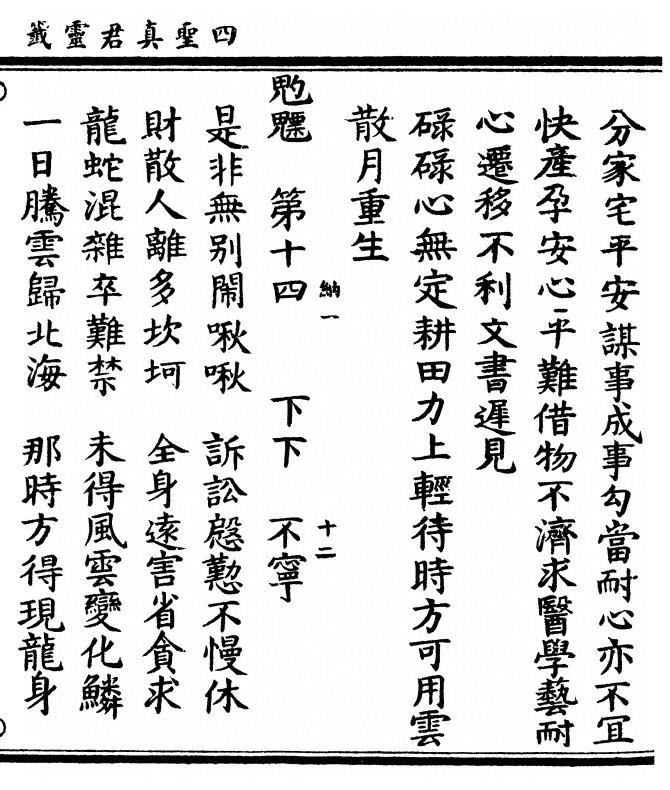 四聖真君靈籤
分家宅平安謀事成事勾當耐心亦不宜
快產孕安心平難借物不濟求醫學藝耐
心遷移不利文書遲見
碌碌心無定耕田力上輕待時方可用雲
散月重生
第十四 納一 下下 不寧 十二
是非無別鬧啾啾 訴訟慇懃不慢休
財散人離多坎坷 全身遠害省貪求
龍蛇混雜卒難禁 未得風雲變化鱗
一日騰雲歸北海 那時方得現龍身